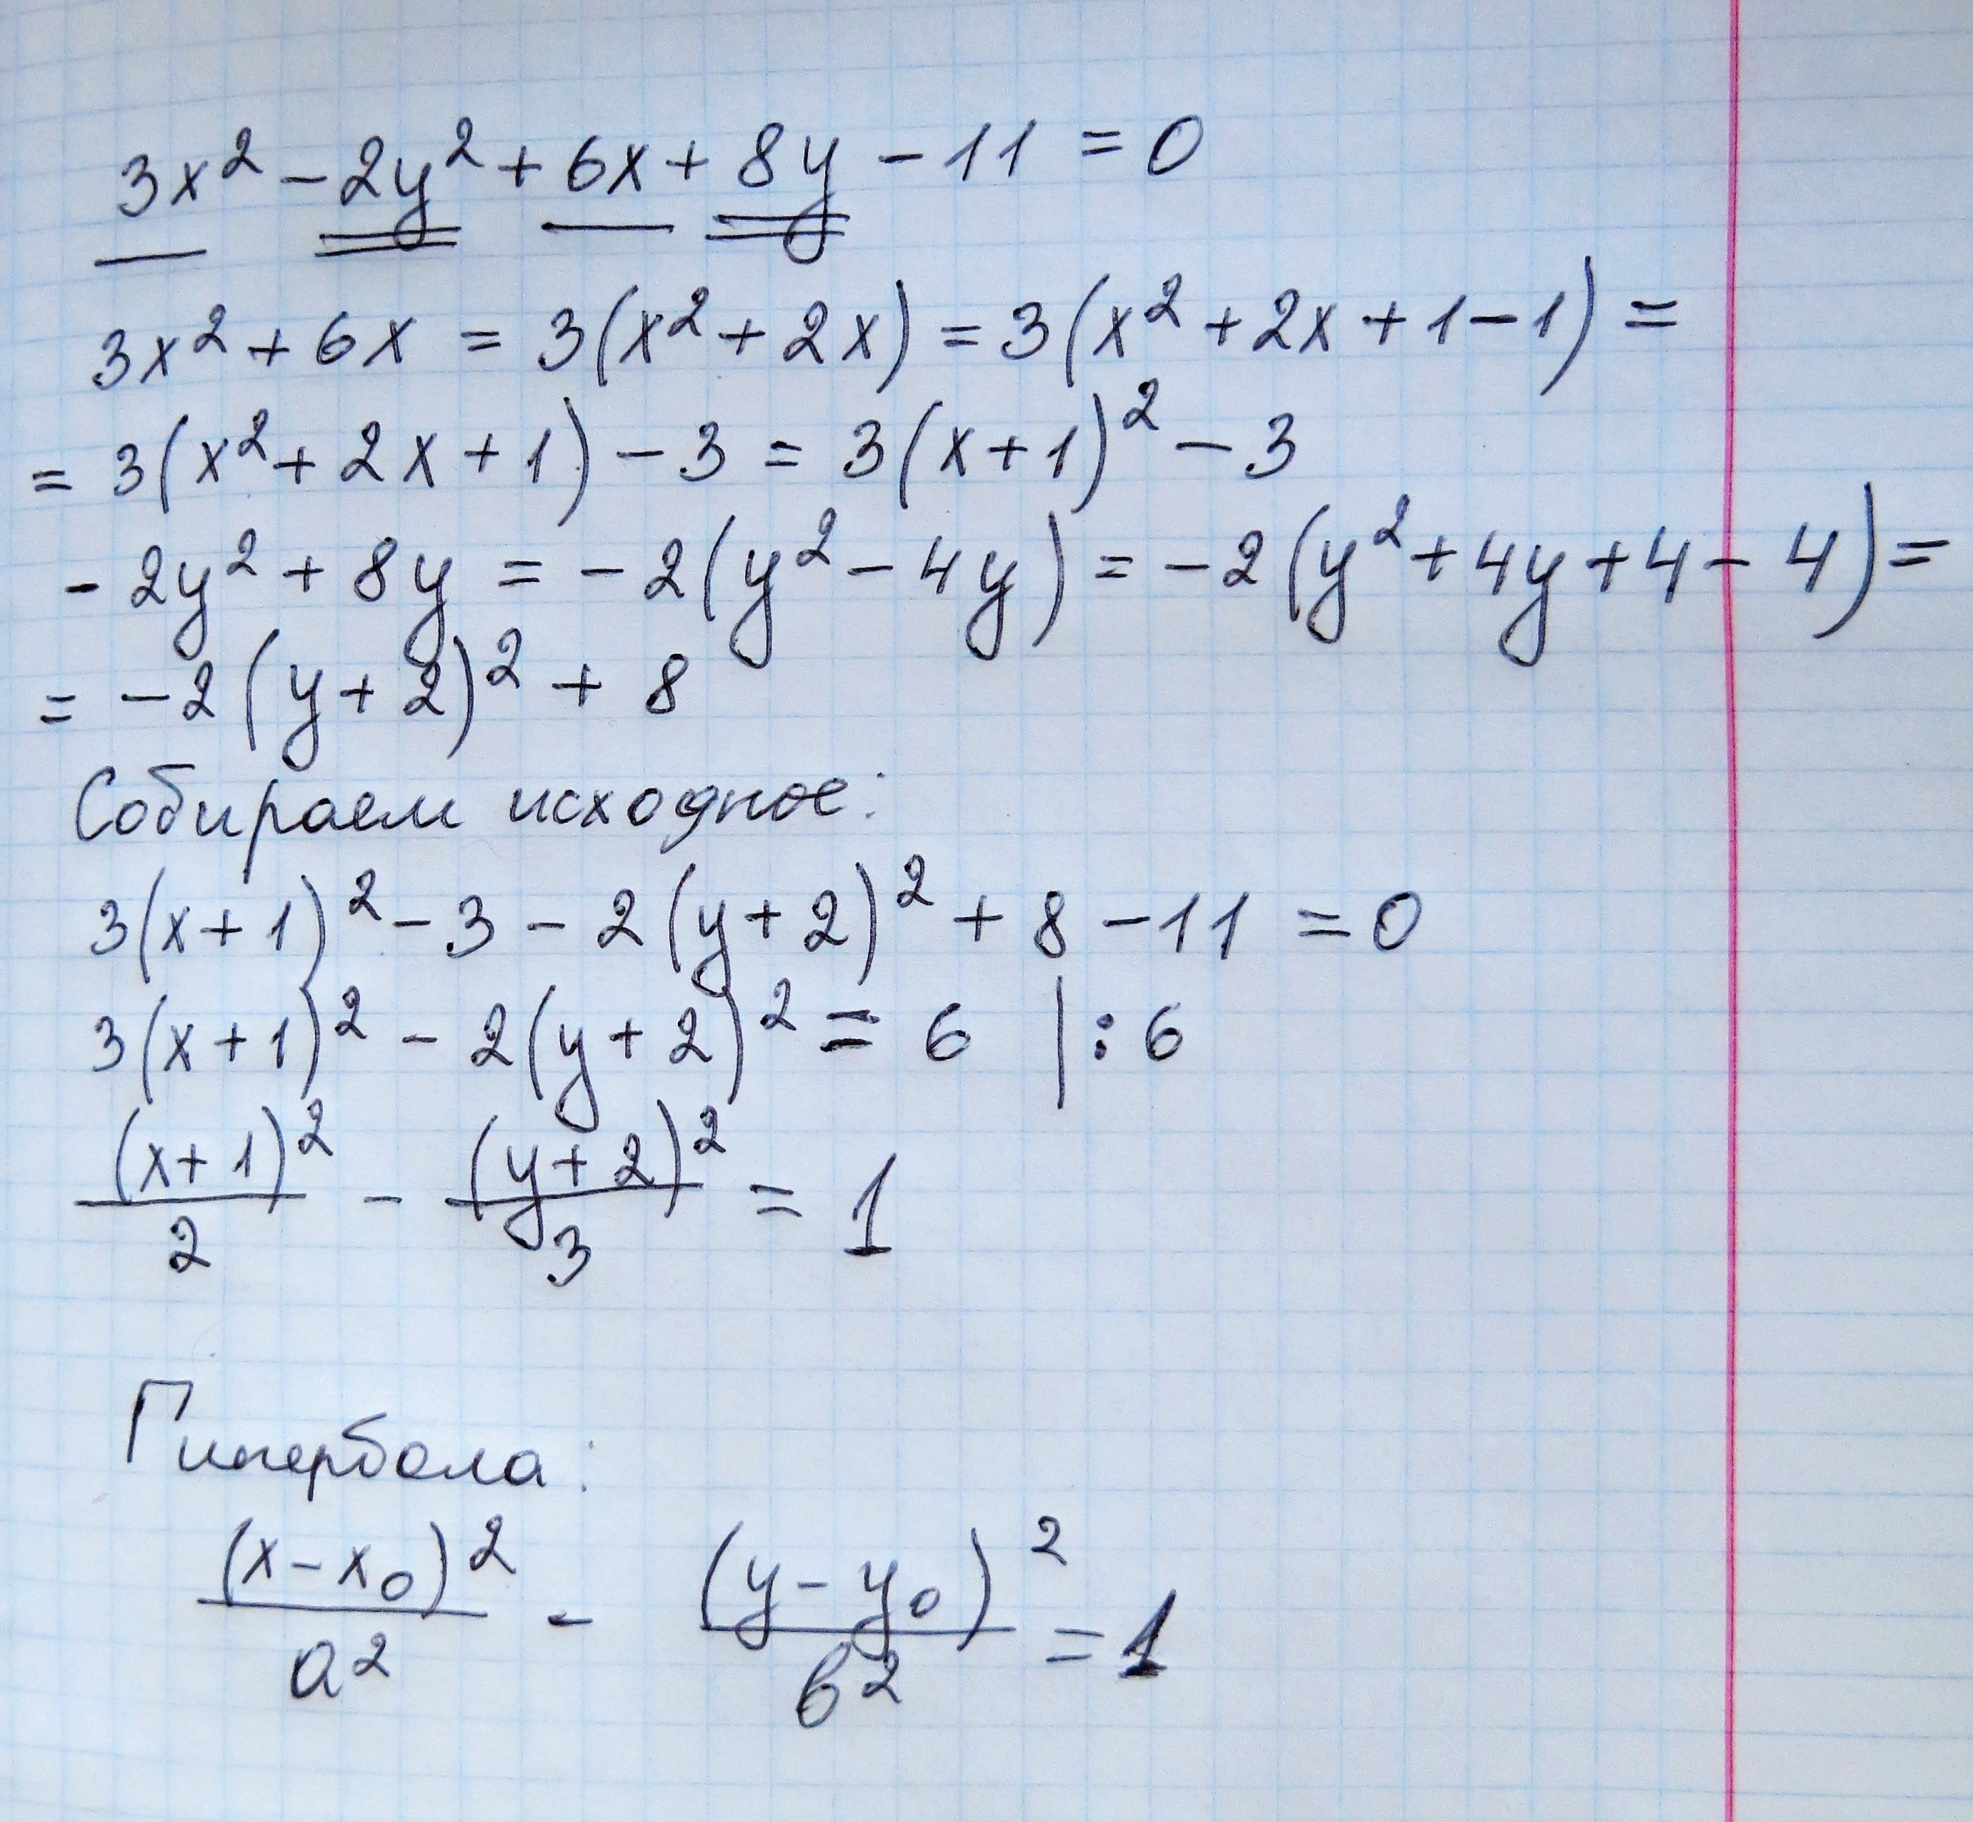 3x² - 2y² + 6x + 8y - 11 = 0
3x² + 6x = 3(x² + 2x) = 3(x² + 2x + 1 - 1) =
= 3(x² + 2x + 1) - 3 = 3(x + 1)² - 3
- 2y² + 8y = - 2(y² - 4y) = - 2(y² + 4y + 4 - 4) =
= - 2(y + 2)² + 8
Собираем исходное:
3(x + 1)² - 3 - 2(y + 2)² + 8 - 11 = 0
3(x + 1)² - 2(y + 2)² = 6 | : 6
(x + 1)²/2 - (y + 2)²/3 = 1
Гипербола:
(x - x₀)²/a² - (y - y₀)²/b² = 1